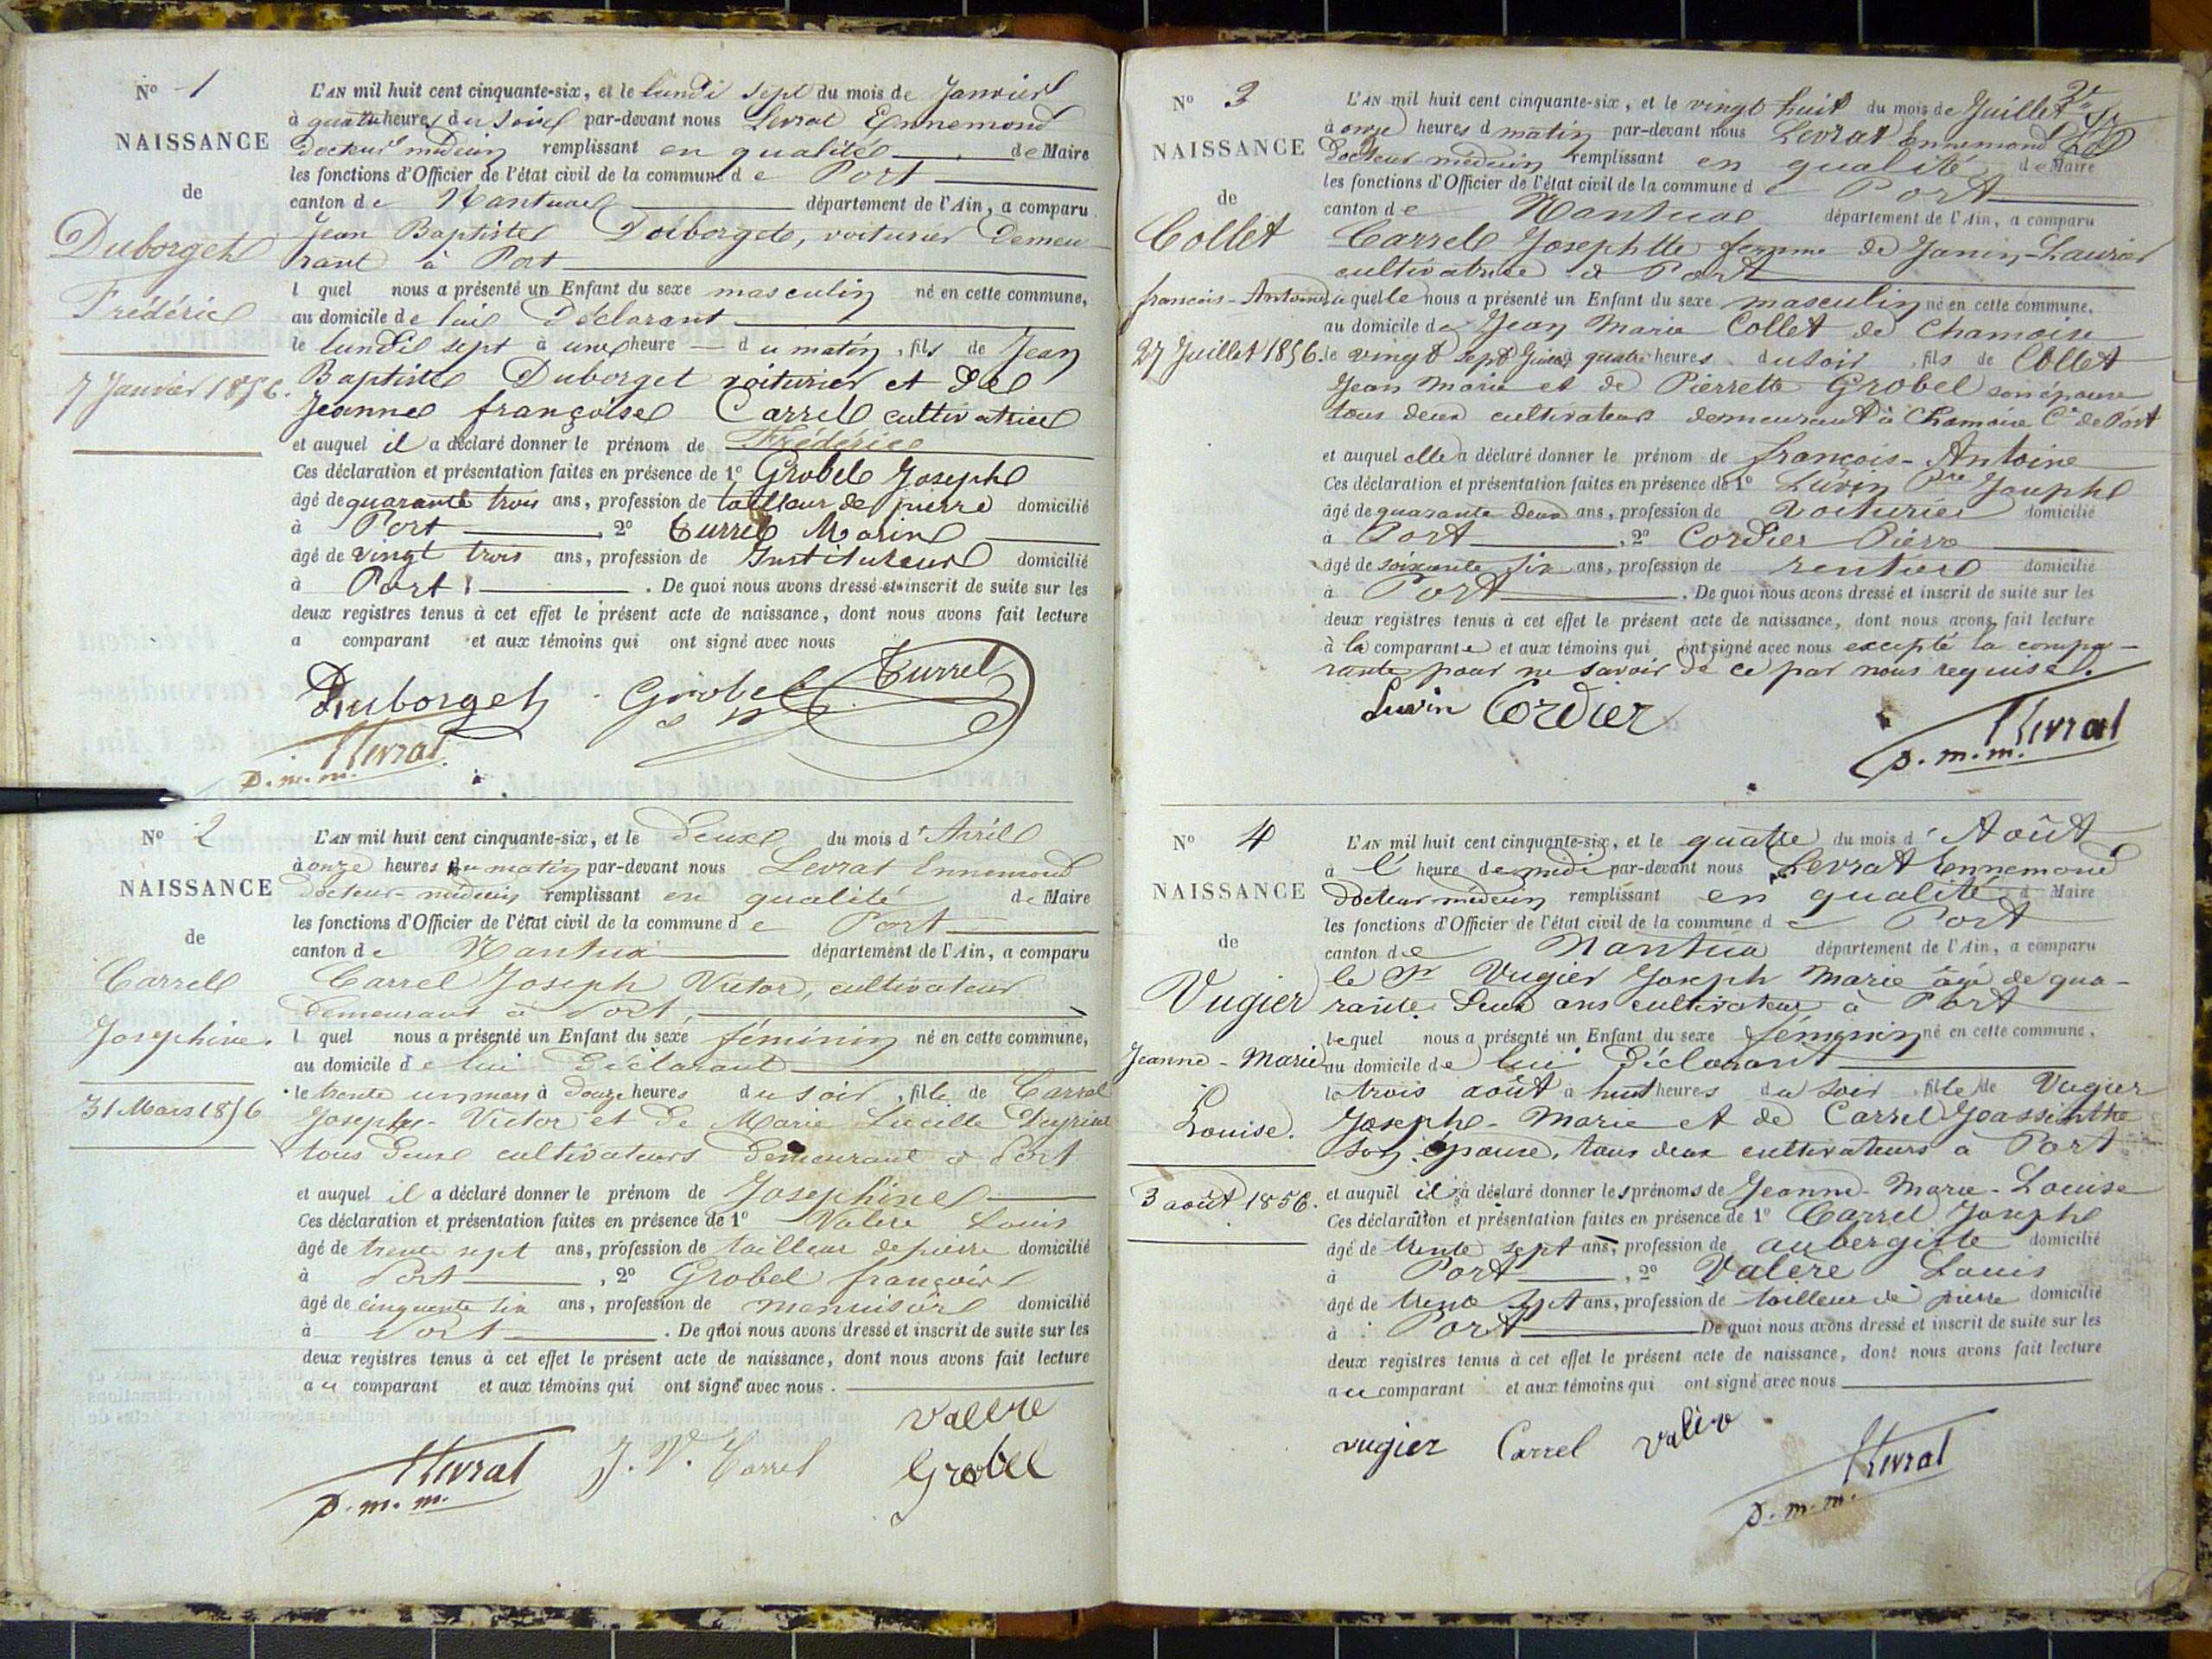 N° 1
NAISSANCE
de
Duborget
Frédéric
7 Janvier 1856.
L'AN mil huit cent cinquante-six, et le lundi sept du mois de Janvier
à quatre heures du soir par-devant nous Levrat Ennemond
docteur médecin remplissant en qualité de Maire
les fonctions d'Officier de l'état civil de la commune de Port
canton de Nantua département de l'Ain, a comparu
Jean Baptiste Duborget, voiturier demeu
rant à Port
l quel nous a présenté un Enfant du sexe masculin né en cette commune,
au domicile de lui déclarant
le lundi sept à une heure du matin, fils de Jean
Baptiste Duborget voiturier et de
Jeanne françoise Carrel cultivatrice
et auquel il a déclaré donner le prénom de Frédéric
Ces déclaration et présentation faites en présence de 1° Grobel Joseph
âgé de quarante trois ans, profession de tailleur de pierre domicilié
à Port, 2° Turrel Marin
âgé de vingt trois ans, profession de Instituteur domicilié
à Port. De quoi nous avons dressé et inscrit de suite sur les
deux registres tenus à cet effet le présent acte de naissance, dont nous avons fait lecture
a comparant et aux témoins qui ont signé avec nous
Duborget Grobel Turrel
Levrat
d. m. m.
N° 2
NAISSANCE
de
Carrell
Josephine.
31 Mars 1856
L'AN mil huit cent cinquante-six, et le deux du mois d'Avril
à onze heures du matin par-devant nous Levrat Ennemond
docteur-médecin remplissant en qualité de Maire
les fonctions d'Officier de l'état civil de la commune de Port
canton de Nantua département de l'Ain, a comparu
Carrel Joseph Victor, cultivateur
demeurant à Port,
l quel nous a présenté un Enfant du sexe féminin né en cette commune,
au domicile de lui déclarant
le trente un mars à douze heures du soir, fille de Carrel
Joseph-Victor et de Marie Lucille
tous deux cultivateurs demeurant à Port
et auquel il a déclaré donner le prénom de Josephine
Ces déclaration et présentation faites en présence de 1° Valere Louis
âgé de trente sept ans, profession de tailleur de pierre domicilié
à Port, 2° Grobel françois
âgé de cinquante six ans, profession de menuisier domicilié
à Port. De quoi nous avons dressé et inscrit de suite sur les
deux registres tenus à cet effet le présent acte de naissance, dont nous avons fait lecture
au comparant et aux témoins qui ont signé avec nous.
Valere
Levrat J. V. Carrel Grobel
d. m. m.
N° 3
NAISSANCE
de
Collet
françois-Antoine
27 Juillet 1856.
L'AN mil huit cent cinquante-six, et le vingt huit du mois de Juillet
à onze heures d matin par-devant nous Levrat Ennemond
docteur-médecin remplissant en qualité de Maire
les fonctions d'Officier de l'état civil de la commune d Port
canton de Nantua département de l'Ain, a comparu
Carrel Josephtte femme de Janin-Laurier
cultivatrice à Port
laquelle nous a présenté un Enfant du sexe masculin né en cette commune,
au domicile de Jean Marie Collet de Chamoise
le vingt sept à quatre heures du soir fils de Collet
Jean Marie et de Pierrette Grobel son épouse
tous deux cultivateurs demeurant à Chamoise Cne de Port
et auquel elle a déclaré donner le prénom de françois-Antoine
Ces déclaration et présentation faites en présence de 1° Luvin Pre Joseph
âgé de quarante deux ans, profession de voiturier domicilié
à Port, 2° Cordier Pierre
âgé de soixante six ans, profession de rentier domicilié
à Port. De quoi nous avons dressé et inscrit de suite sur les
deux registres tenus à cet effet le présent acte de naissance, dont nous avons fait lecture
à la comparante et aux témoins qui ont signé avec nous excepté la compa-
rante pour ne savoir de ce par nous requise.
Luvin Cordier
Levrat
d. m. m.
N° 4
NAISSANCE
de
Vugier
Jeanne-Marie
Louise.
3 août 1856.
L'AN mil huit cent cinquante-six, et le quatre du mois d'Août
à l'heure de midi par-devant nous Levrat Ennemond
docteur médecin remplissant en qualité d Maire
les fonctions d'Officier de l'état civil de la commune de Port
canton de Nantua département de l'Ain, a comparu
le Sr Vugier Joseph Marie âgé de qua-
rante deux ans cultivateur à Port
lequel nous a présenté un Enfant du sexe féminin né en cette commune,
au domicile de lui déclarant
le trois août à huit heures du soir fille de Vugier
Joseph-Marie et de Carrel Jeassinthe
son épouse, tous deux cultivateurs à Port
et auquel il a déclaré donner les prénoms de Jeanne-Marie-Louise
Ces déclaration et présentation faites en présence de 1° Carrel Joseph
âgé de trente sept ans, profession de aubergiste domicilié
à Port, 2° Valere Louis
âgé de trente sept ans, profession de tailleur de pierre domicilié
à Port De quoi nous avons dressé et inscrit de suite sur les
deux registres tenus à cet effet le présent acte de naissance, dont nous avons fait lecture
au comparant et aux témoins qui ont signé avec nous
vugier Carrel valere
Levrat
d. m. m.